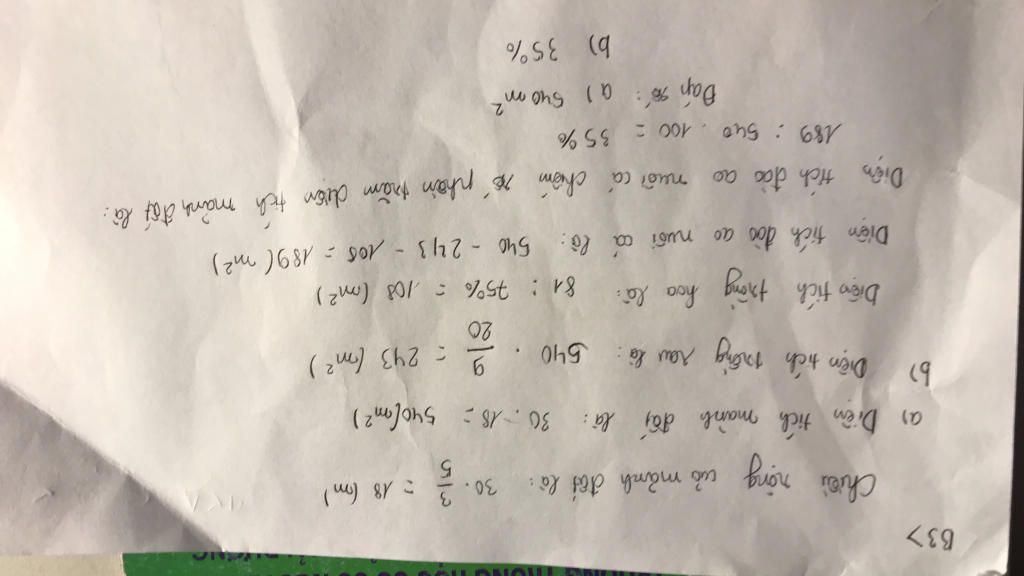 B3>
Chiều rộng của mảnh đất là: 30 . 3/5 = 18 (m)
a) Diện tích mảnh đất là: 30 . 18 = 540 (m²)
b) Diện tích trồng rau là: 540 . 9/20 = 243 (m²)
Diện tích trồng hoa là: 81 : 75% = 108 (m²)
Diện tích đào ao nuôi cá là: 540 - 243 - 108 = 189 (m²)
Diện tích đào ao nuôi cá chiếm số phần trăm diện tích mảnh đất là:
189 : 540 . 100 = 35%
Đáp số: a) 540 m²
b) 35%